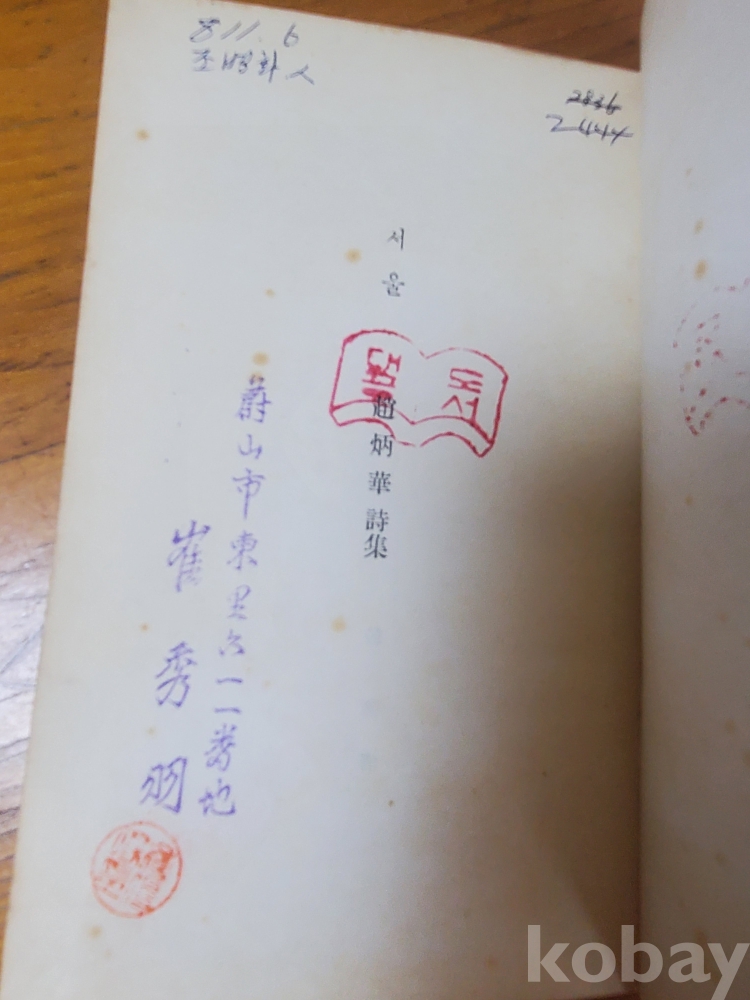 811.6
조병화 ㅅ
2836
2444
서울
독서
趙炳華詩集
蔚山市東里六一一番地
崔秀明
kobay